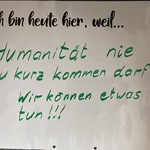 h bin heute hier, weil...
Humanität nie
u kurz kommen darf
Wir können etwas
tun!!!